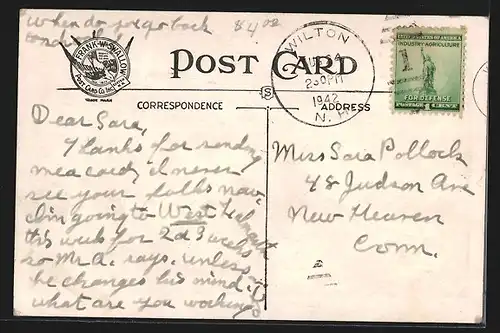 When do you go back
84 02
FRANK W. SWALLOW
POST CARD CO. INC.
TRADE MARK
POST CARD
CORRESPONDENCE
ADDRESS
WILTON
2 30 PM
1942
N. H.
UNITED STATES OF AMERICA
INDUSTRY AGRICULTURE
FOR DEFENSE
POSTAGE 1 CENT
Dear Sara,
Thanks for sending
me a card, I never
see your folks now,
I'm going to West
this week for 2 or 3 weeks
so Mr A. says, unless
he changes his mind.
what are you working
Miss Sara Pollock
48 Judson Ave
New Heaven
Conn.